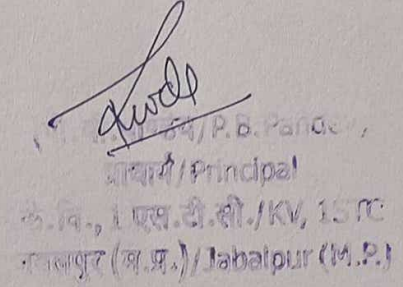 /P.B. Pandey,
प्राचार्य/Principal
के.वि., 1 एस.टी.सी./KV, 1STC
जबलपुर (म.प्र.)/Jabalpur (M.P.)